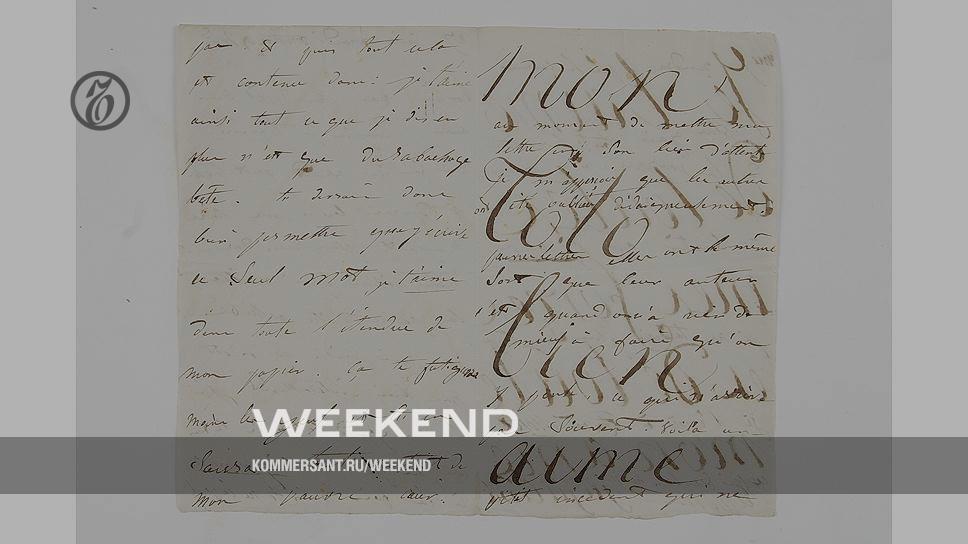 par. & puis tout cela
est contenu dans: je t'aime
ainsi tout ce que je dis en
plus n'est que du rabachage
bête. tu devrais donc
bien permettre que j'écrive
ce seul mot je t'aime
dans toute l'étendue de
mon papier. ça te
même les
mon pauvre cœur.
mon
au moment de mettre ma
lettre
je m'apperçois que les autres
ont été oubliées dédaigneusement.
pauvres lettres elles ont le même
sort que leur auteur
c'est quand on a rien de
mieux à faire qu'on
y pense ce qui n'arrive
pas souvent. Voilà un
petit incident qui ne
Toto
bien
aimé
WEEKEND
KOMMERSANT.RU/WEEKEND